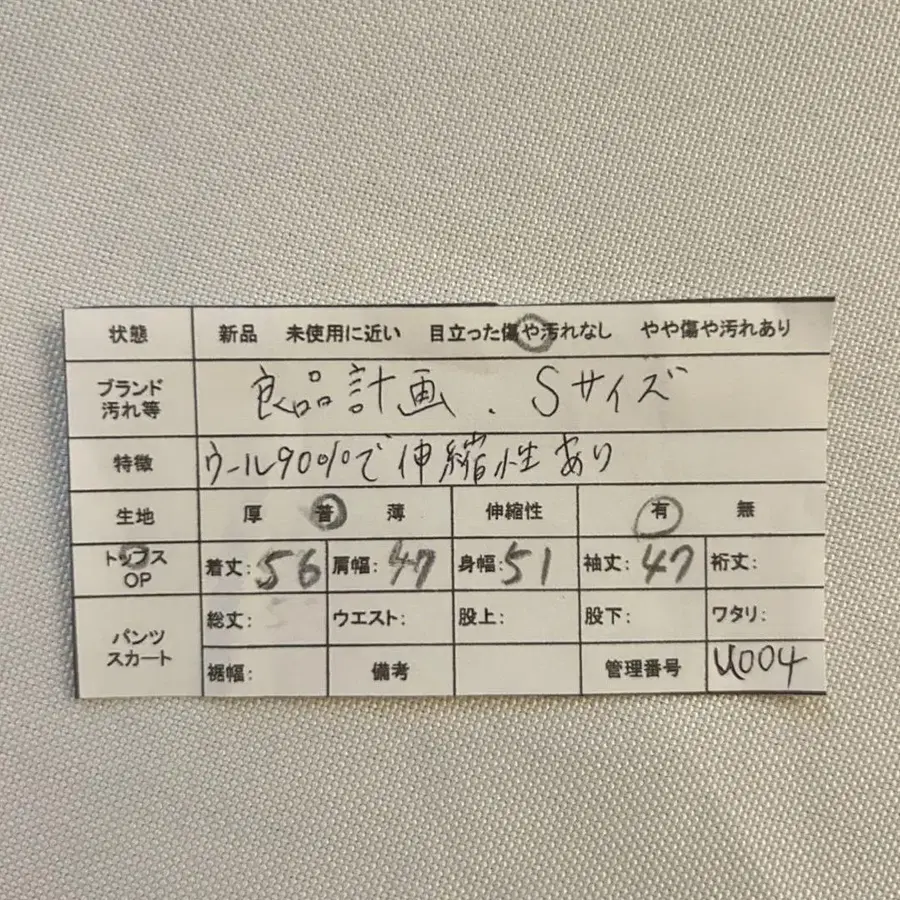 状態 新品 未使用に近い 目立った傷や汚れなし やや傷や汚れあり
ブランド
汚れ等 良品計画、Sサイズ
特徴 ウール90%で伸縮性あり
生地 厚 普 薄 伸縮性 有 無
トップス
OP 着丈:56 肩幅:47 身幅:51 袖丈:47 裄丈:
パンツ
スカート 総丈: ウエスト: 股上: 股下: ワタリ:
裾幅: 備考 管理番号 U004